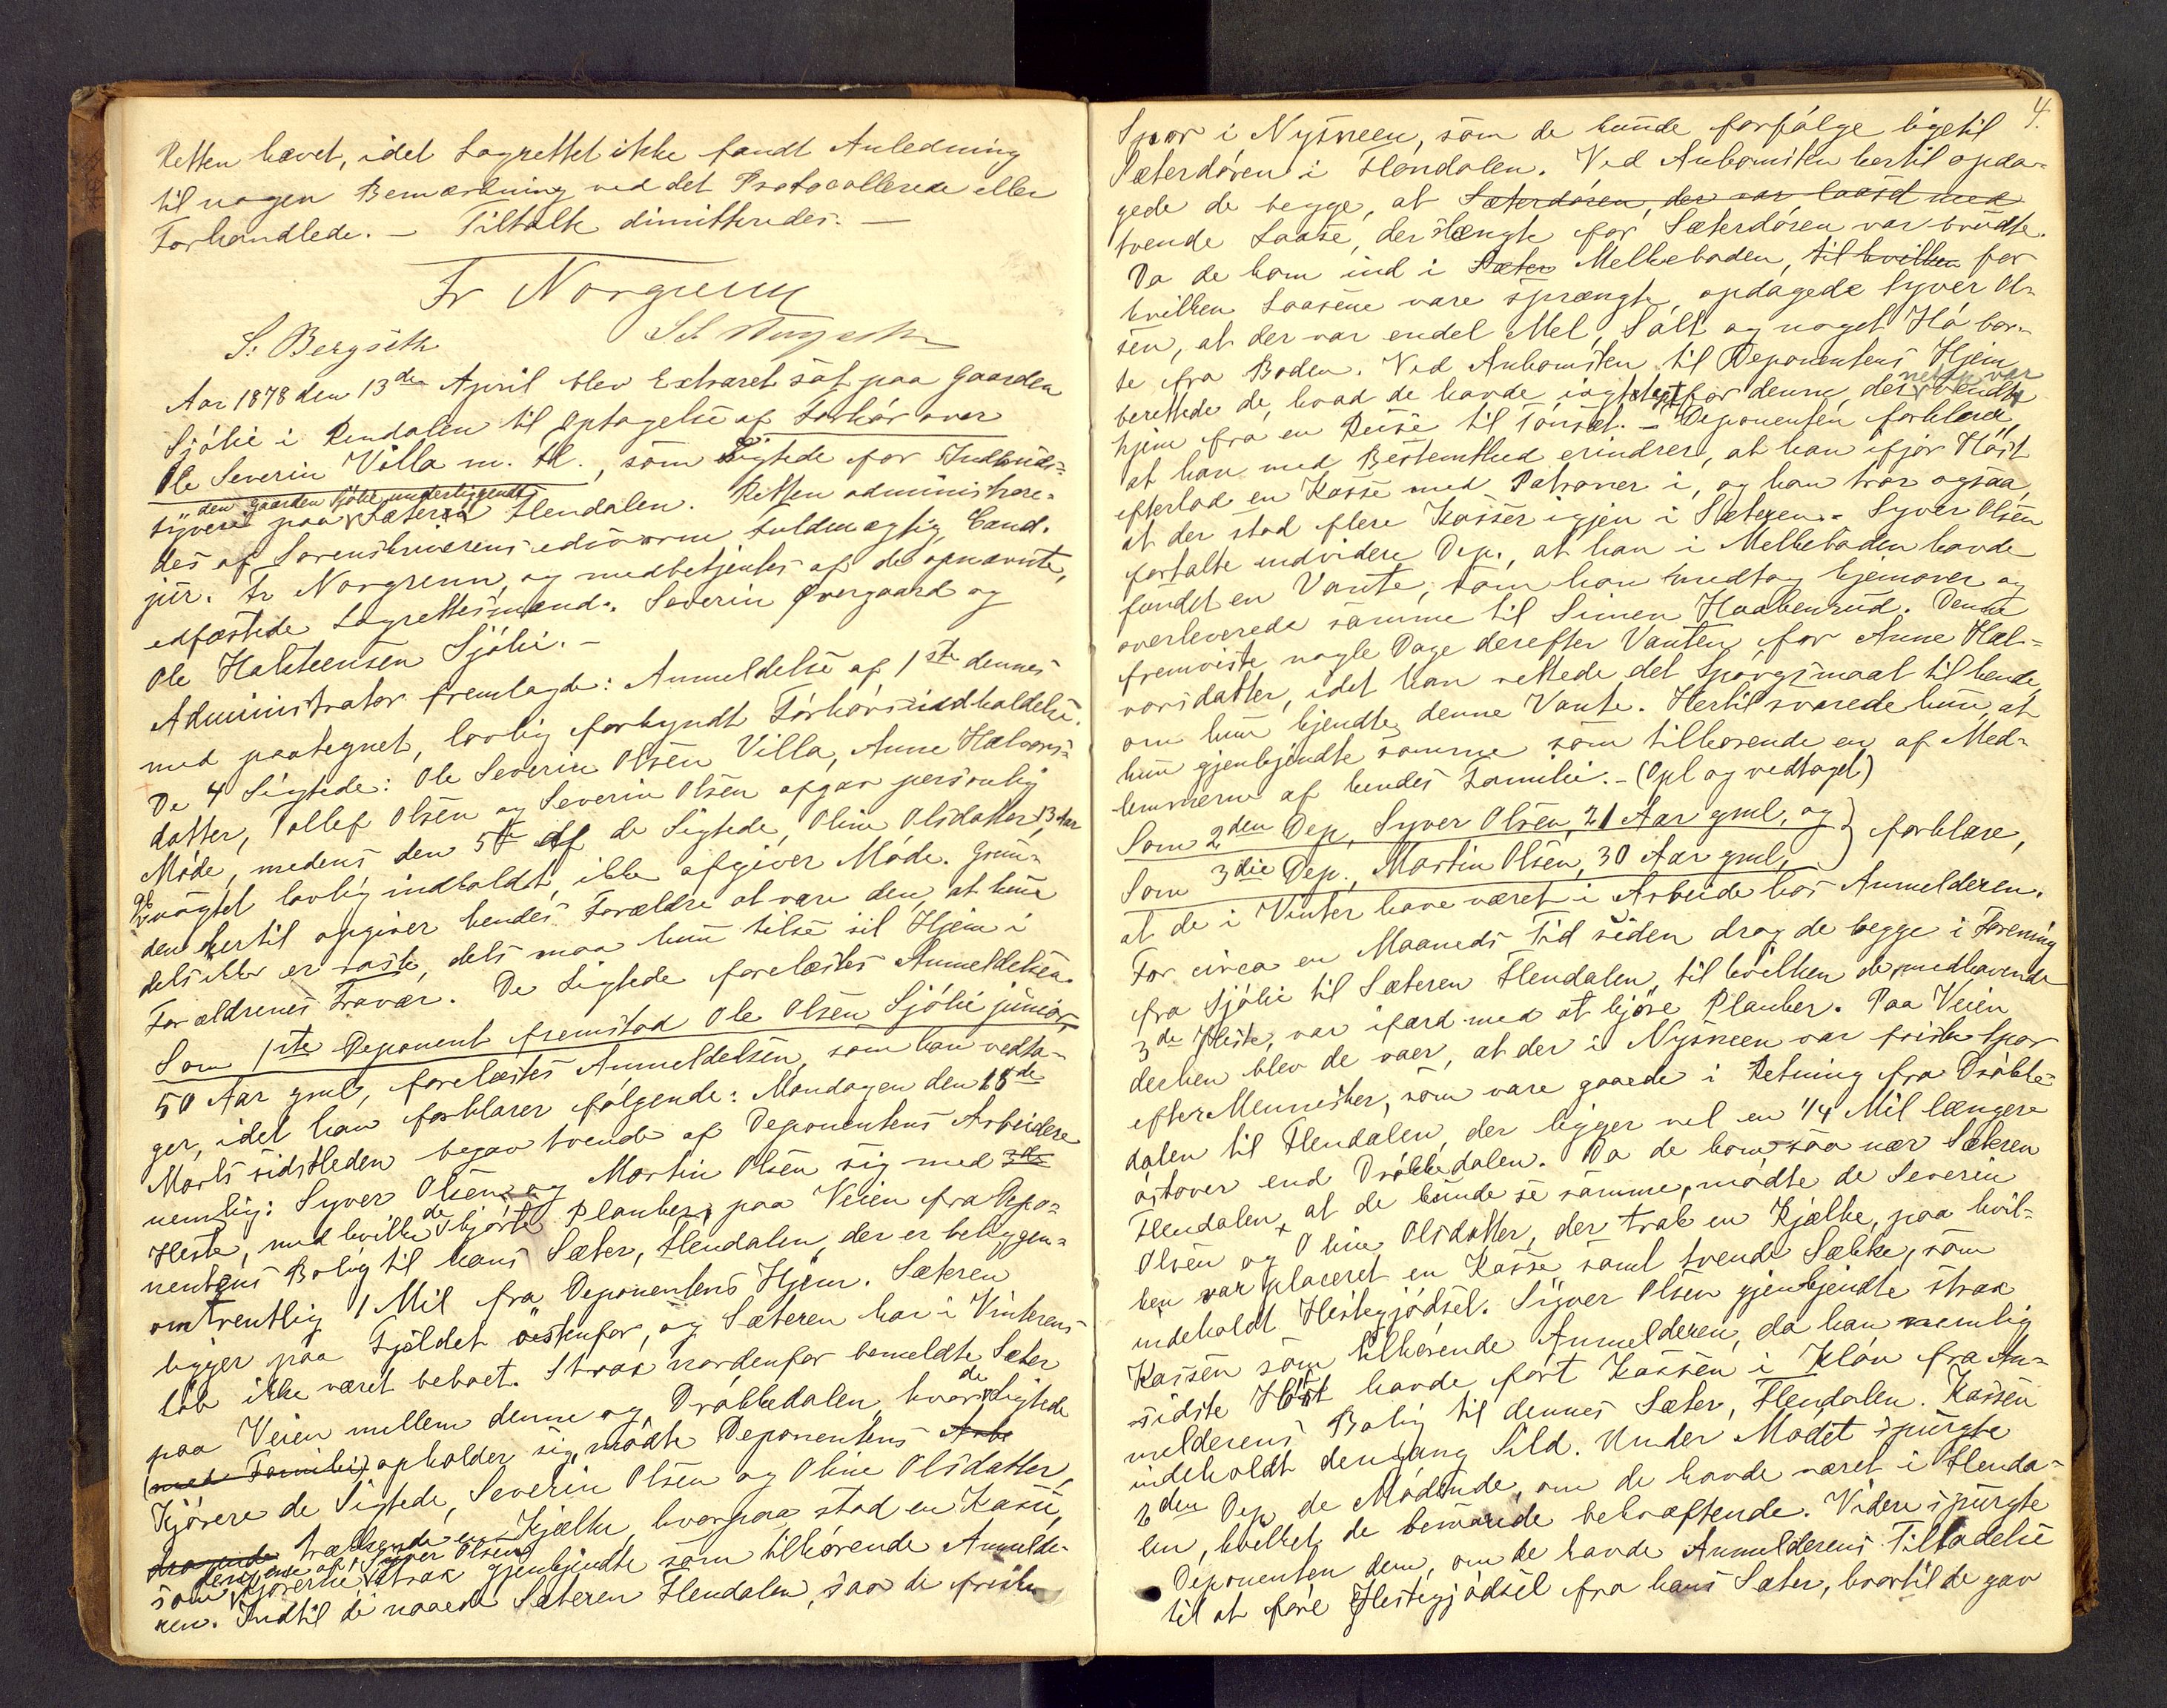 Retten hævet, idet Lagrettet ikke fandt Anledning
til nogen Bemærkning ved det Protocollerede eller
Forhandlede. – Tiltalte dimitteredes. –
Fr Norgrenn
S. Bergseth
Aar 1878 den 13de April blev Extraret sat paa Gaarden
Sjölie i Rendalen til Optagelse af Forhör over
Ole Severin Villa m. fl., som Sigtede for Indbruds-
den Gaarden Sjölie underliggende
tyveri paa Sæteren Flendalen. Retten administrere-
des af Sorenskriverens edsvorne Fuldmægtig, Cand.
jur. Fr Norgrenn, og medbetjentes af de opnævnte,
edfæstede Lagrettesmænd: Severin Øvergaard og
Ole Halsteensen Sjölie. –
Administrator fremlagde: Anmeldelse af 1ste dennes
med paategnet, lovlig forkyndt Forhörsindkaldelse.
De 4 Sigtede: Ole Severin Olsen Villa, Anne Halvors-
datter, Tollef Olsen og Severin Olsen afgav personlig
Möde, medens den 5te af de Sigtede, Oline Olsdatter, 13 Aar
uagtet lovlig indkaldt, ikke afgiver Möde. Grun-
den hertil opgiver hendes Forældre at være den, at hun
dels ikke er rask, dels maa hun tilse sit Hjem i
Forældrenes Fravær. De Sigtede forelæstes Anmeldelsen.
Som 1ste Deponent fremstod Ole Olsen Sjölie junior,
50 Aar gml, forelæstes Anmeldelsen, som han vedta-
ger, idet han forklarer fölgende: Mandagen den 18de
Marts sidstleden begav tvende af Deponentens Arbeidere
nemlig: Syver Olsen og Martin Olsen sig med 3de
Heste, med hvilke de kjörte Planker, paa Veien fra Depo-
nentens Bolig til hans Sæter, Flendalen, der er beliggen-
omtrentlig 1 Mil fra Deponentens Hjem. Sæteren
ligger paa Fjeldet östenfor, og Sæteren har i Vinterens
Löb ikke været beboet. Strax nordenfor bemeldte Sæter
paa Veien mellem denne og Dröbbedalen, hvor de Sigtede
(med Familie) opholder sig, mödte Deponentens Arbe
Kjörere de Sigtede, Severin Olsen og Oline Olsdatter,
dragende trækkende en Kjælke, hvorpaa stod en Kasse,
den ene af Syver Olsen
som Kjörerne strax gjenkjendte som tilhörende Anmelde-
ren. Indtil de naaede Sæteren Flendalen, saa de friske
4.
Spor i Nysneen, som de kunde forfölge ligetil
Sæterdören i Flendalen. Ved Ankomsten hertil opda-
gede de begge, at Sæterdören, der var laast med
tvende Laase, der hængte for Sæterdören var brudte.
Da de kom ind i Sæter Melkeboden, til hvilken for
hvilken Laasene vare sprængte, opdagede Syver Ol-
sen, at der var endel Mel, Salt og noget Hö bor-
te fra Boden. Ved Ankomsten til Deponentens Hjem
berettede de, hvad de havde iagttaget for denne, der netop var vendt
hjem fra en Reise til Tönset. – Deponenten forklarer,
at han med Bestemthed erindrer, at han ifjor Höst
efterlod en Kasse med Patroner i, og han tror ogsaa,
at der stod flere Kasser igjen i Sæteren. Syver Olsen
fortalte endvidere Dep., at han i Melkeboden havde
fundet en Vante, som han medtog hjemover og
overleverede samme til Simen Haabenrud. Denne
fremviste nogle Dage derefter Vanten for Anne Hal-
vorsdatter, idet han rettede det Spörgsmaal til hende,
om hun kjendte denne Vante. Hertil svarede hun, at
hun gjenkjendte samme som tilhörende en af Med-
lemmerne af hendes Familie. – (Opl og vedtaget)
Som 2den Dep, Syver Olsen, 21 Aar gml, og
Som 3die Dep., Martin Olsen, 30 Aar gml, } forklare,
at de i Vinter have været i Arbeide hos Anmelderen.
For circa en Maaneds Tid siden drog de begge i Forening
fra Sjölie til Sæteren Flendalen, til hvilken de, medhavende
3de Heste, var ifærd med at kjöre Planker. Paa Veien
derhen blev de vaer, at der i Nysneen var friske Spor
efter Mennesker, som vare gaaede i Retning fra Dröbbe-
dalen til Flendalen, der ligger vel en 1/4 Mil længere
östover end Dröbbedalen. Da de kom saa nær Sæteren
Flendalen, at de kunde se samme, mödte de Severin
Olsen og Oline Olsdatter, der trak en Kjælke, paa hvil-
ken var placeret en Kasse samt tvende Sække, som
indeholdt Hestegjödsel. Syver Olsen gjenkjendte strax
Kassen som tilhörende Anmelderen, da han nemlig
sidste Höst havde fört Kassen i Klöv fra An-
melderens Bolig til dennes Sæter, Flendalen. Kassen
indeholdt dengang Sild. Under Mödet spurgte
2den Dep de Mödende, om de havde været i Flenda-
len, hvilket de besvarede bekræftende. Videre spurgte
Deponenten dem, om de havde Anmelderens Tilladelse
til at före Hestegjödsel fra hans Sæter, hvortil de gav